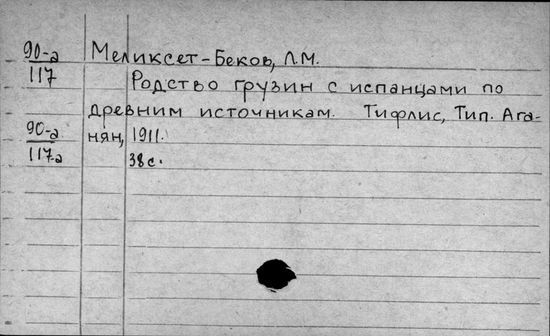 90-а
117
Меликсет-Беков, Л.М.
Родство грузин с испанцами по
древним источникам. Тифлис, Тип. Ага-
90-а
117-а
нян, 1911.
38с.